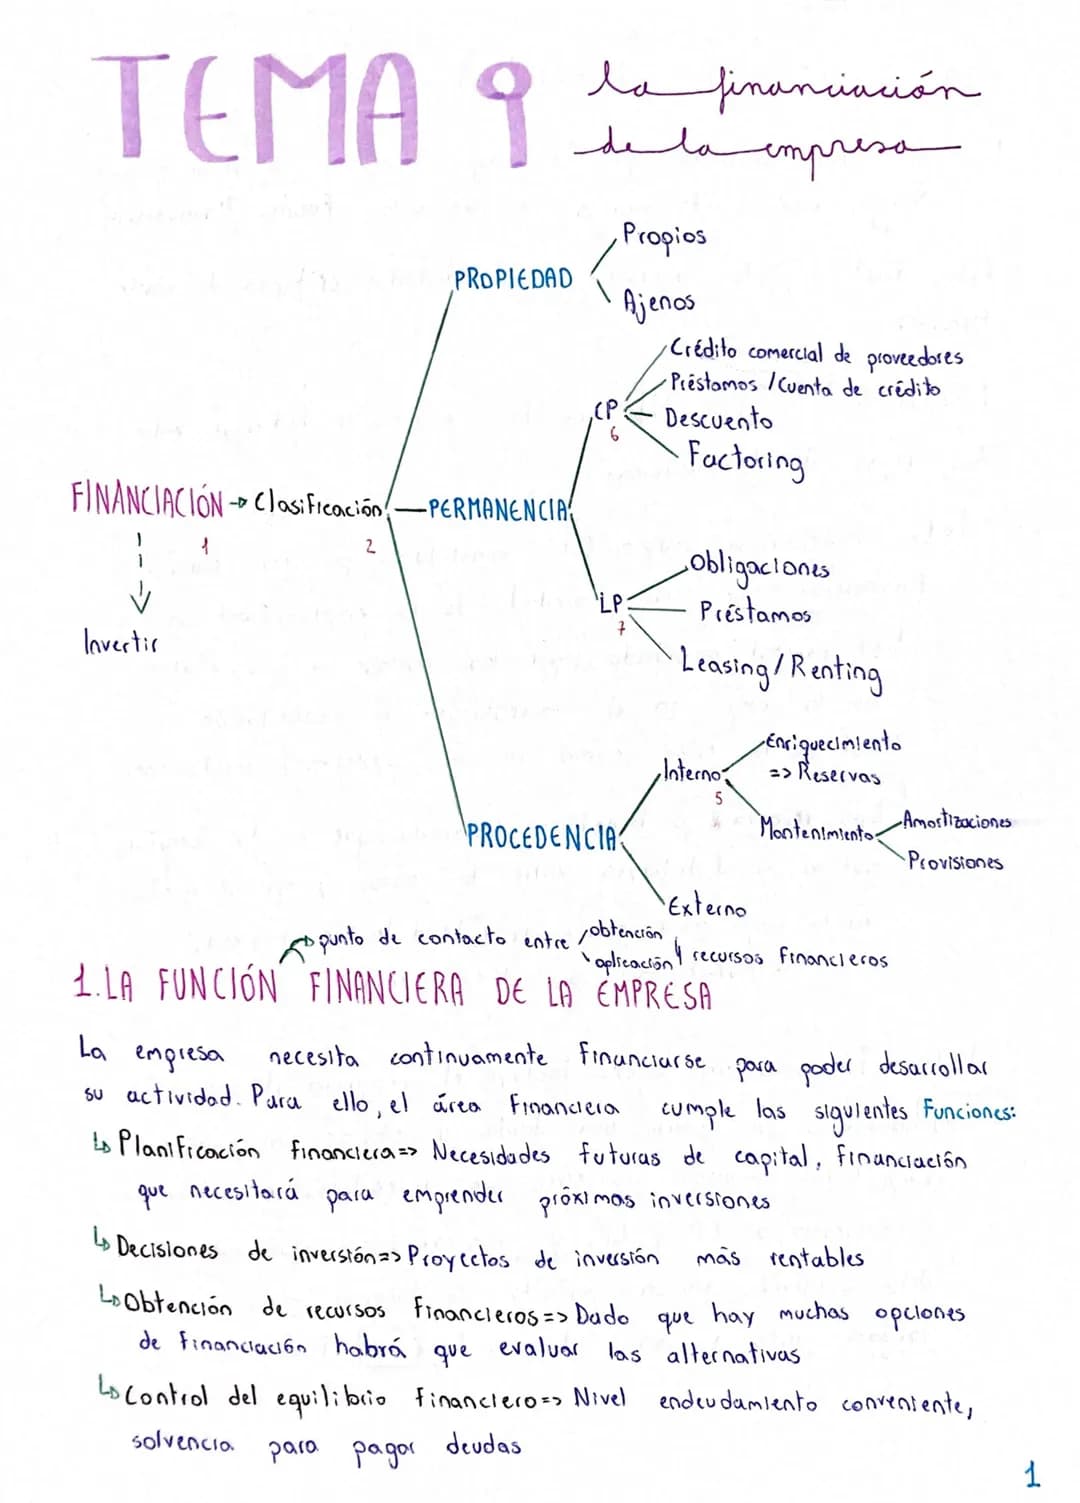 TEMA 9 la financiación
de la empresa
Propios
PROPIEDAD
Ajenos
Crédito comercial de proveedores
Préstamos / Cuenta de crédito
CP
6
Descuento
Factoring
FINANCIACIÓN → Clasificación
PERMANENCIA
1
2
Obligaciones
LP
7
Préstamos
Invertir
Leasing/Renting
Enriquecimiento
Interno
=> Reservas
5
PROCEDENCIA
Mantenimiento
Amortizaciones
Provisiones
Externo
punto de contacto entre obtención
aplicación y recursos financieros
1. LA FUNCIÓN FINANCIERA DE LA EMPRESA
La empresa necesita continuamente financiarse para poder desarrollar
su actividad. Para ello, el área financiera cumple las siguientes funciones:
↳ Planificación financiera => Necesidades futuras de capital, financiación
que necesitará para emprender próximas inversiones
↳ Decisiones de inversión => Proyectos de inversión más rentables
↳ Obtención de recursos financieros => Dado que hay muchas opciones
de financiación habrá que evaluar las alternativas
↳ Control del equilibrio financiero => Nivel endeudamiento conveniente,
solvencia para pagar deudas
1